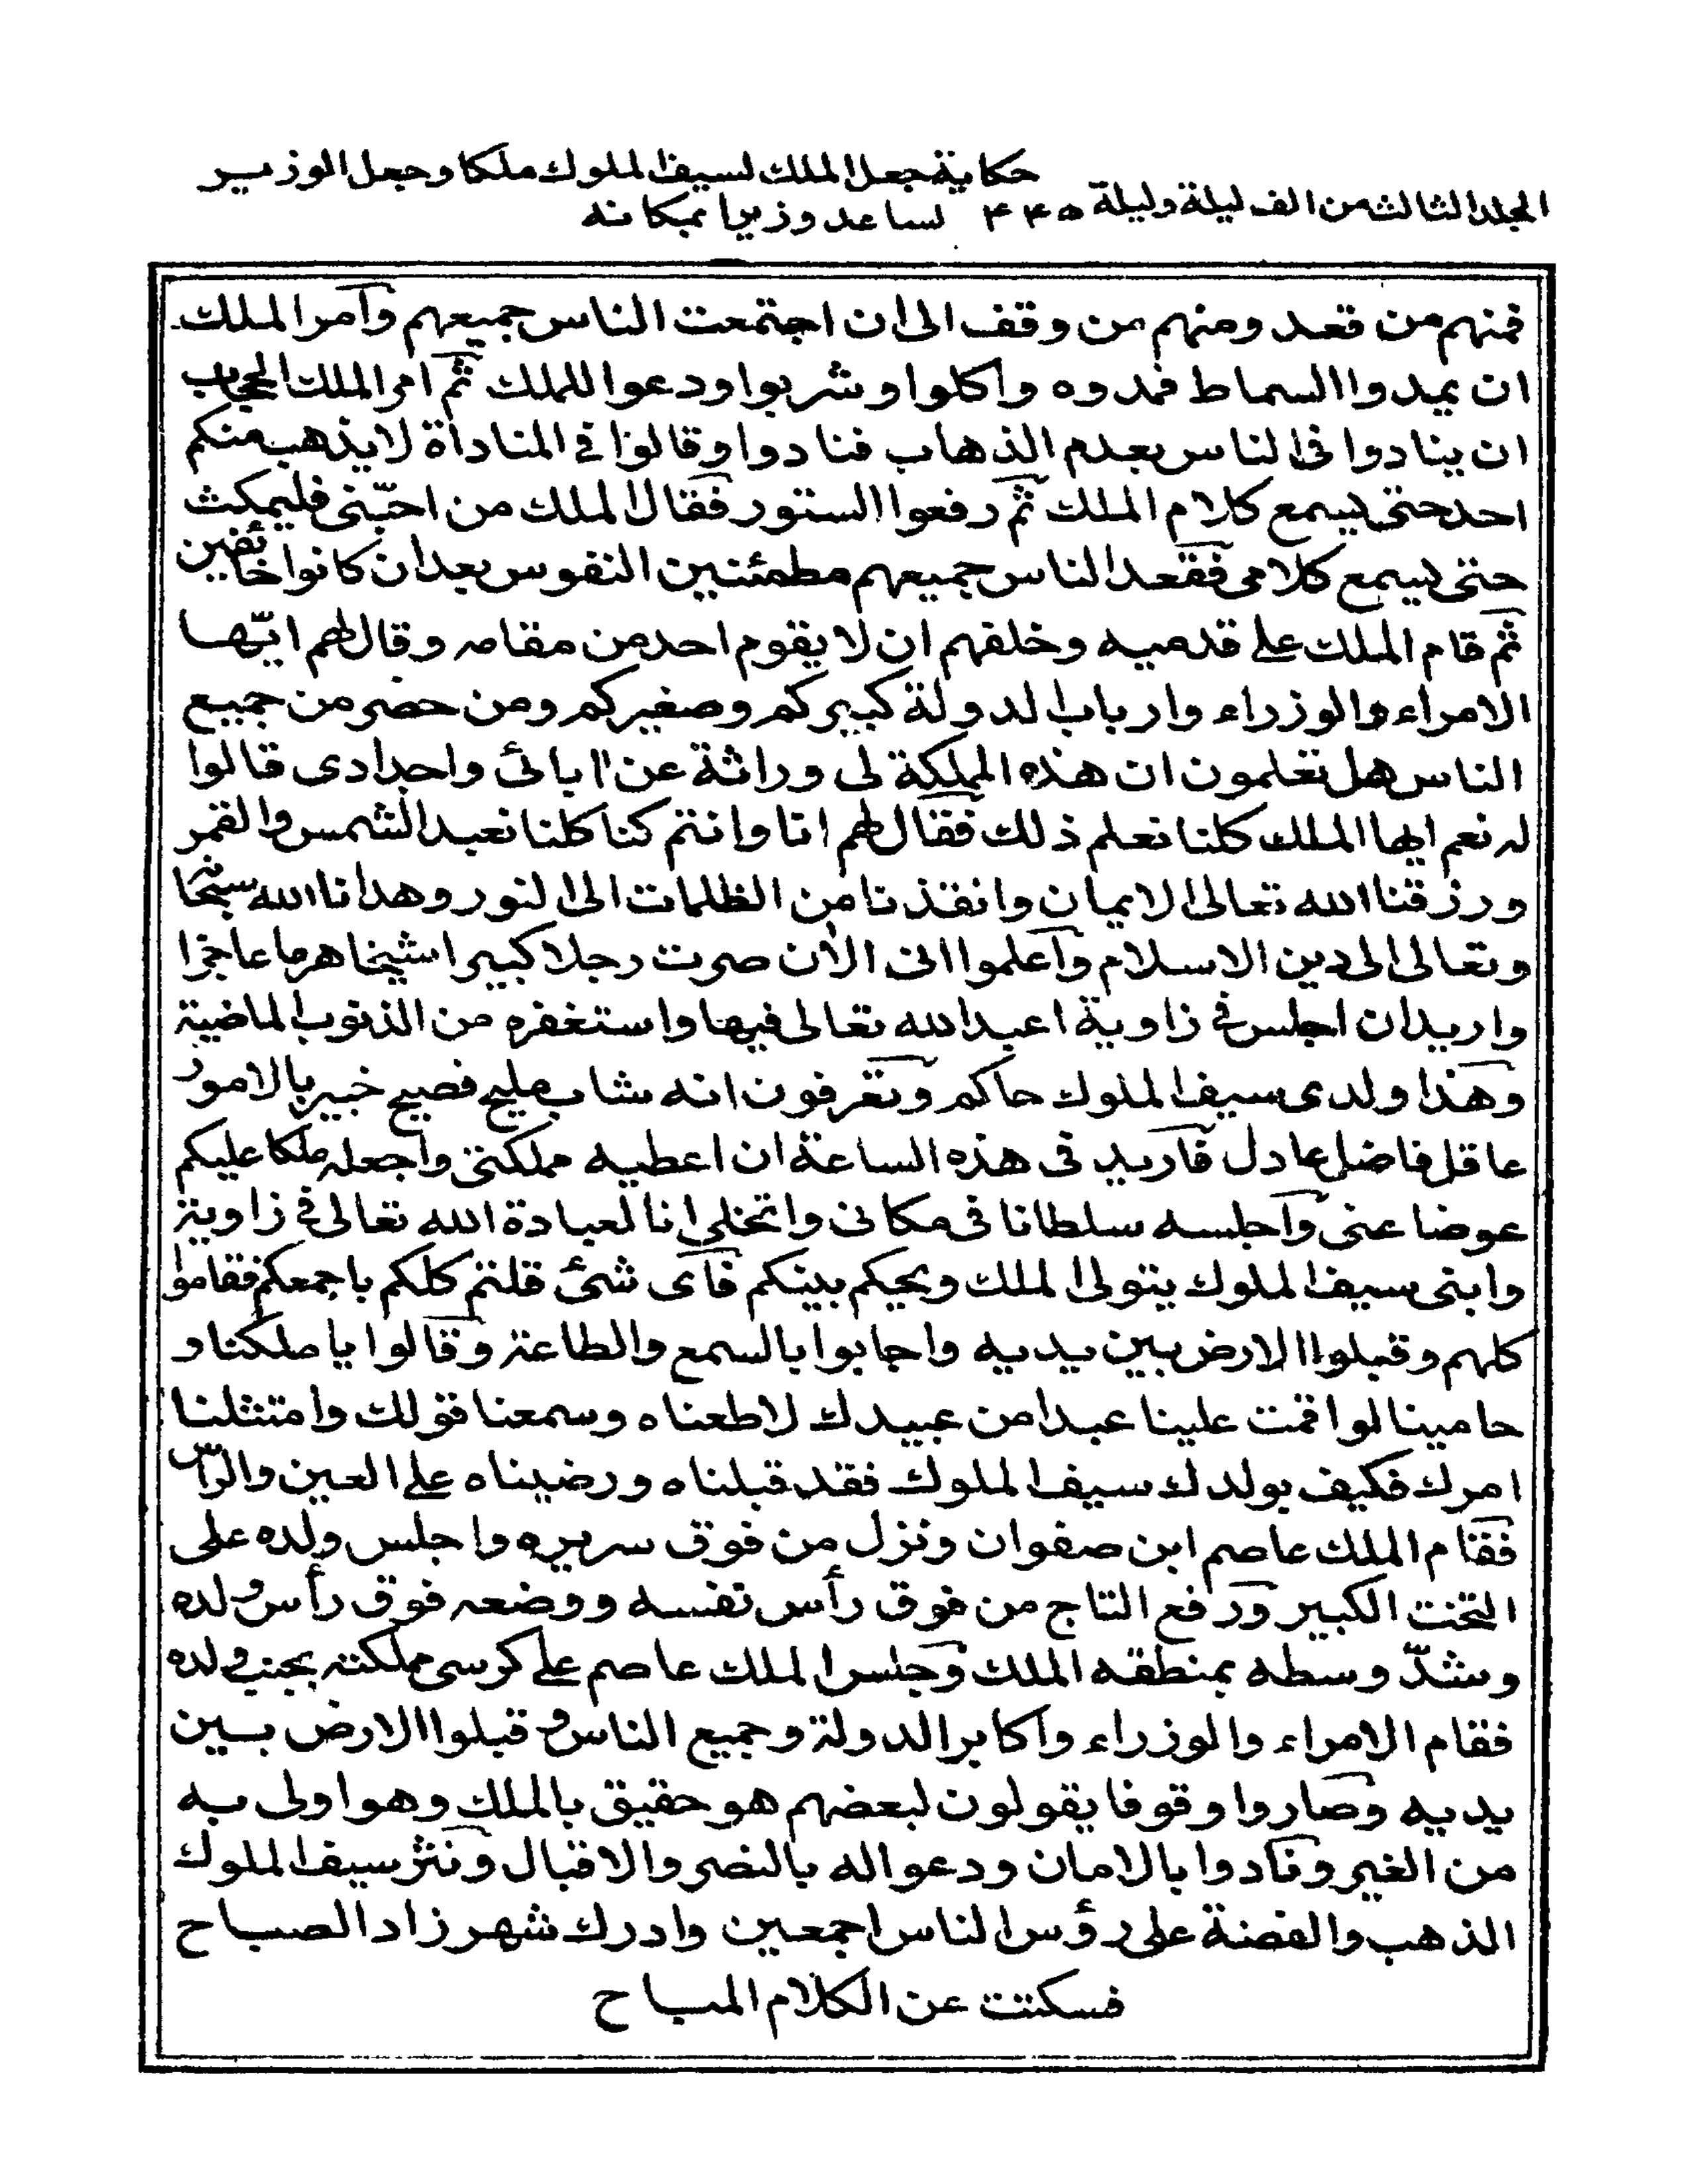 حكاية جعل الملك لسيف الملوك ملكا وجعل الوزير
المجلد الثالث من الف ليلة وليلة ٤٤٥ لساعد وزيرا بمكانه
فمنهم من قعد ومنهم من وقف الى ان اجتمعت الناس جميعهم وآمر الملك
ان يمدوا السماط فمدوه واكلوا وشربوا ودعوا للملك ثم امر الملك الحجاب
ان ينادوا فى الناس بعدم الذهاب فنادوا وقالوا فى المناداة لا يذهب منكم
احد حتى يسمع كلام الملك ثم رفعوا الستور فقال الملك من احبّنى فليمكث
حتى يسمع كلامى فقعد الناس جميعهم مطمئنين النفوس بعد ان كانوا خائفين
ثم قام الملك على قدميه وحلفهم ان لا يقوم احد من مقامه وقال لهم ايّها
الامراء والوزراء وارباب الدولة كبيركم وصغيركم ومن حضر من جميع
الناس هل تعلمون ان هذه المملكة لى وراثة عن آبائ واجدادى قالوا
له نعم ايها الملك كلنا نعلم ذلك فقال لهم انا وانتم كنا كلنا نعبد الشمس والقمر
ورزقنا الله تعالى الايمان وانقذنا من الظلمات الى النور وهدانا الله سبحانه
وتعالى الى دين الاسلام وآعلموا انى الأن صرت رجلا كبيرا شيخا هرما عاجزا
واريد ان اجلس فى زاوية اعبد الله تعالى فيها واستغفره من الذنوب الماضية
وهذا ولدى سيف الملوك حاكم وتعرفون انه شاب مليح فصيح خبير بالامور
عاقل فاضل عادل فآريد فى هذه الساعة ان اعطيه مملكتى واجعله ملكا عليكم
عوضا عنى وآجلسه سلطانا فى مكانى واتخلى انا لعبادة الله تعالى فى زاوية
وابنى سيف الملوك يتولى الملك ويحكم بينكم فآى شئ قلتم كلكم باجمعكم فقاموا
كلهم وقبلوا الارض بين يديه واجابوا بالسمع والطاعة وقالوا يا ملكنا و
حامينا لو اقمت علينا عبدا من عبيدك لاطعناه وسمعنا قولك وامتثلنا
امرك فكيف بولدك سيف الملوك فقد قبلناه ورضيناه على العين والرّاس
فقام الملك عاصم ابن صفوان ونزل من فوق سريره واجلس ولده على
التخت الكبير ورفع التاج من فوق رأس نفسه ووضعه فوق رأس ولده
وشدّ وسطه بمنطقه الملك وجلس الملك عاصم على كرسى مملكته بجنب ولده
فقام الامراء والوزراء واكابر الدولة وجميع الناس و قبلوا الارض بين
يديه وصاروا وقوفا يقولون لبعضهم هو حقيق بالملك وهو اولى به
من الغير ونادوا بالامان ودعوا له بالنصر والاقبال ونثر سيف الملوك
الذهب والفضة على رؤس الناس اجمعين وادرك شهر زاد الصباح
فسكتت عن الكلام المباح